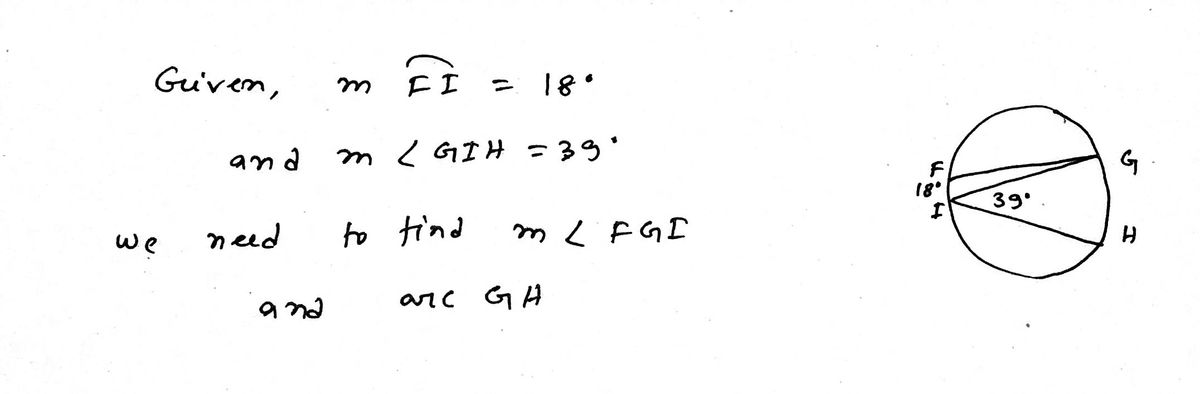 Given, m FI = 18°
and m ∠ GIH = 39°
we need to find m ∠ FGI
and arc GH
F
18°
I
39°
G
H